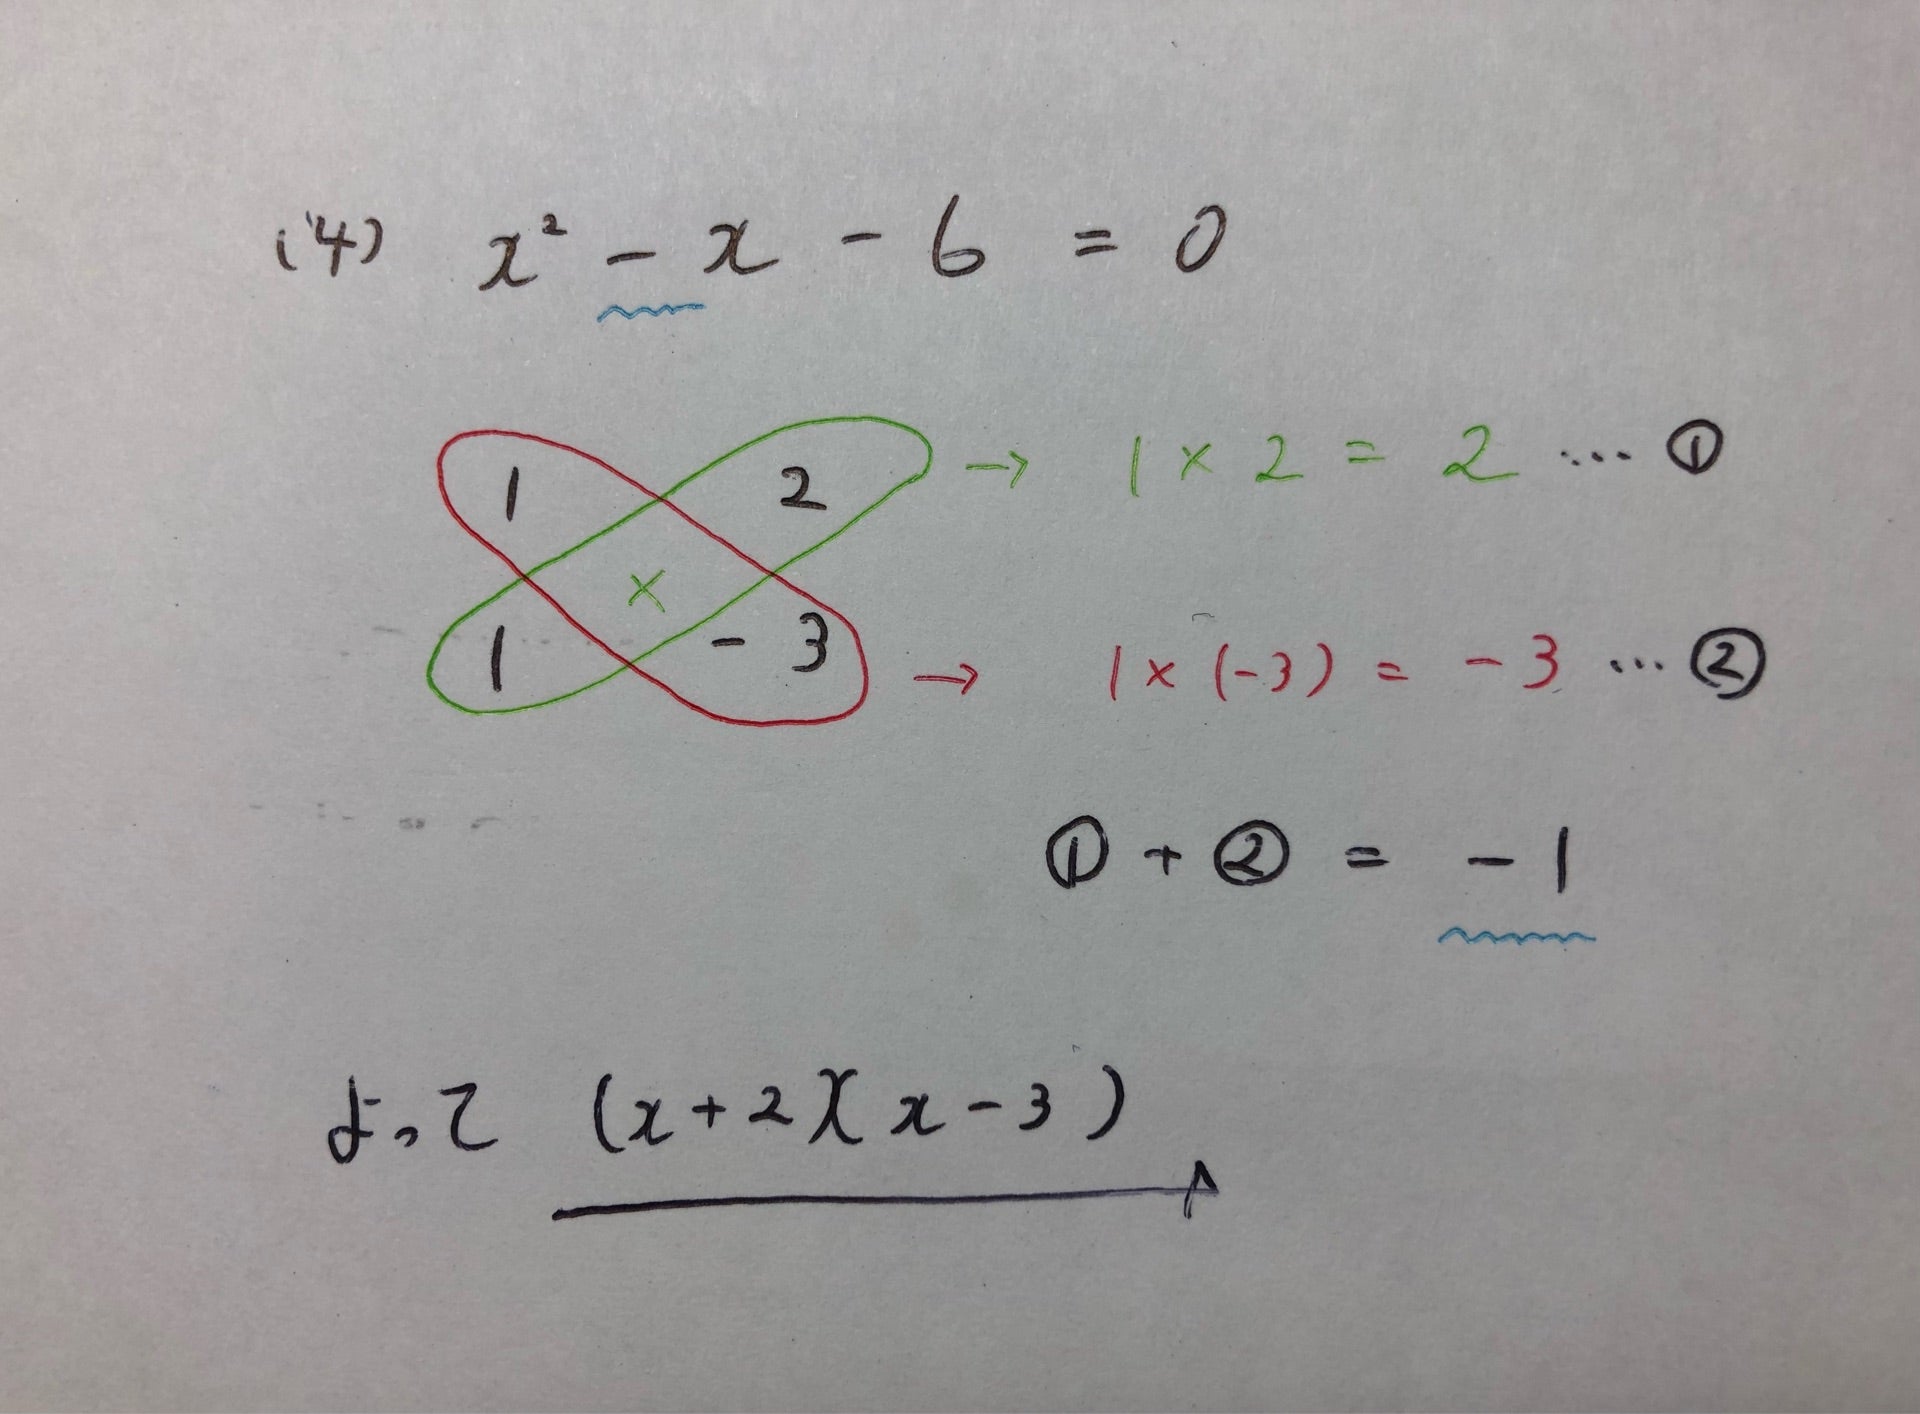 (4) x² - x - 6 = 0
1 2 → 1 × 2 = 2 … ①
×
1 - 3 → 1 × (-3) = - 3 … ②
① + ② = - 1
よって (x+2)(x-3)